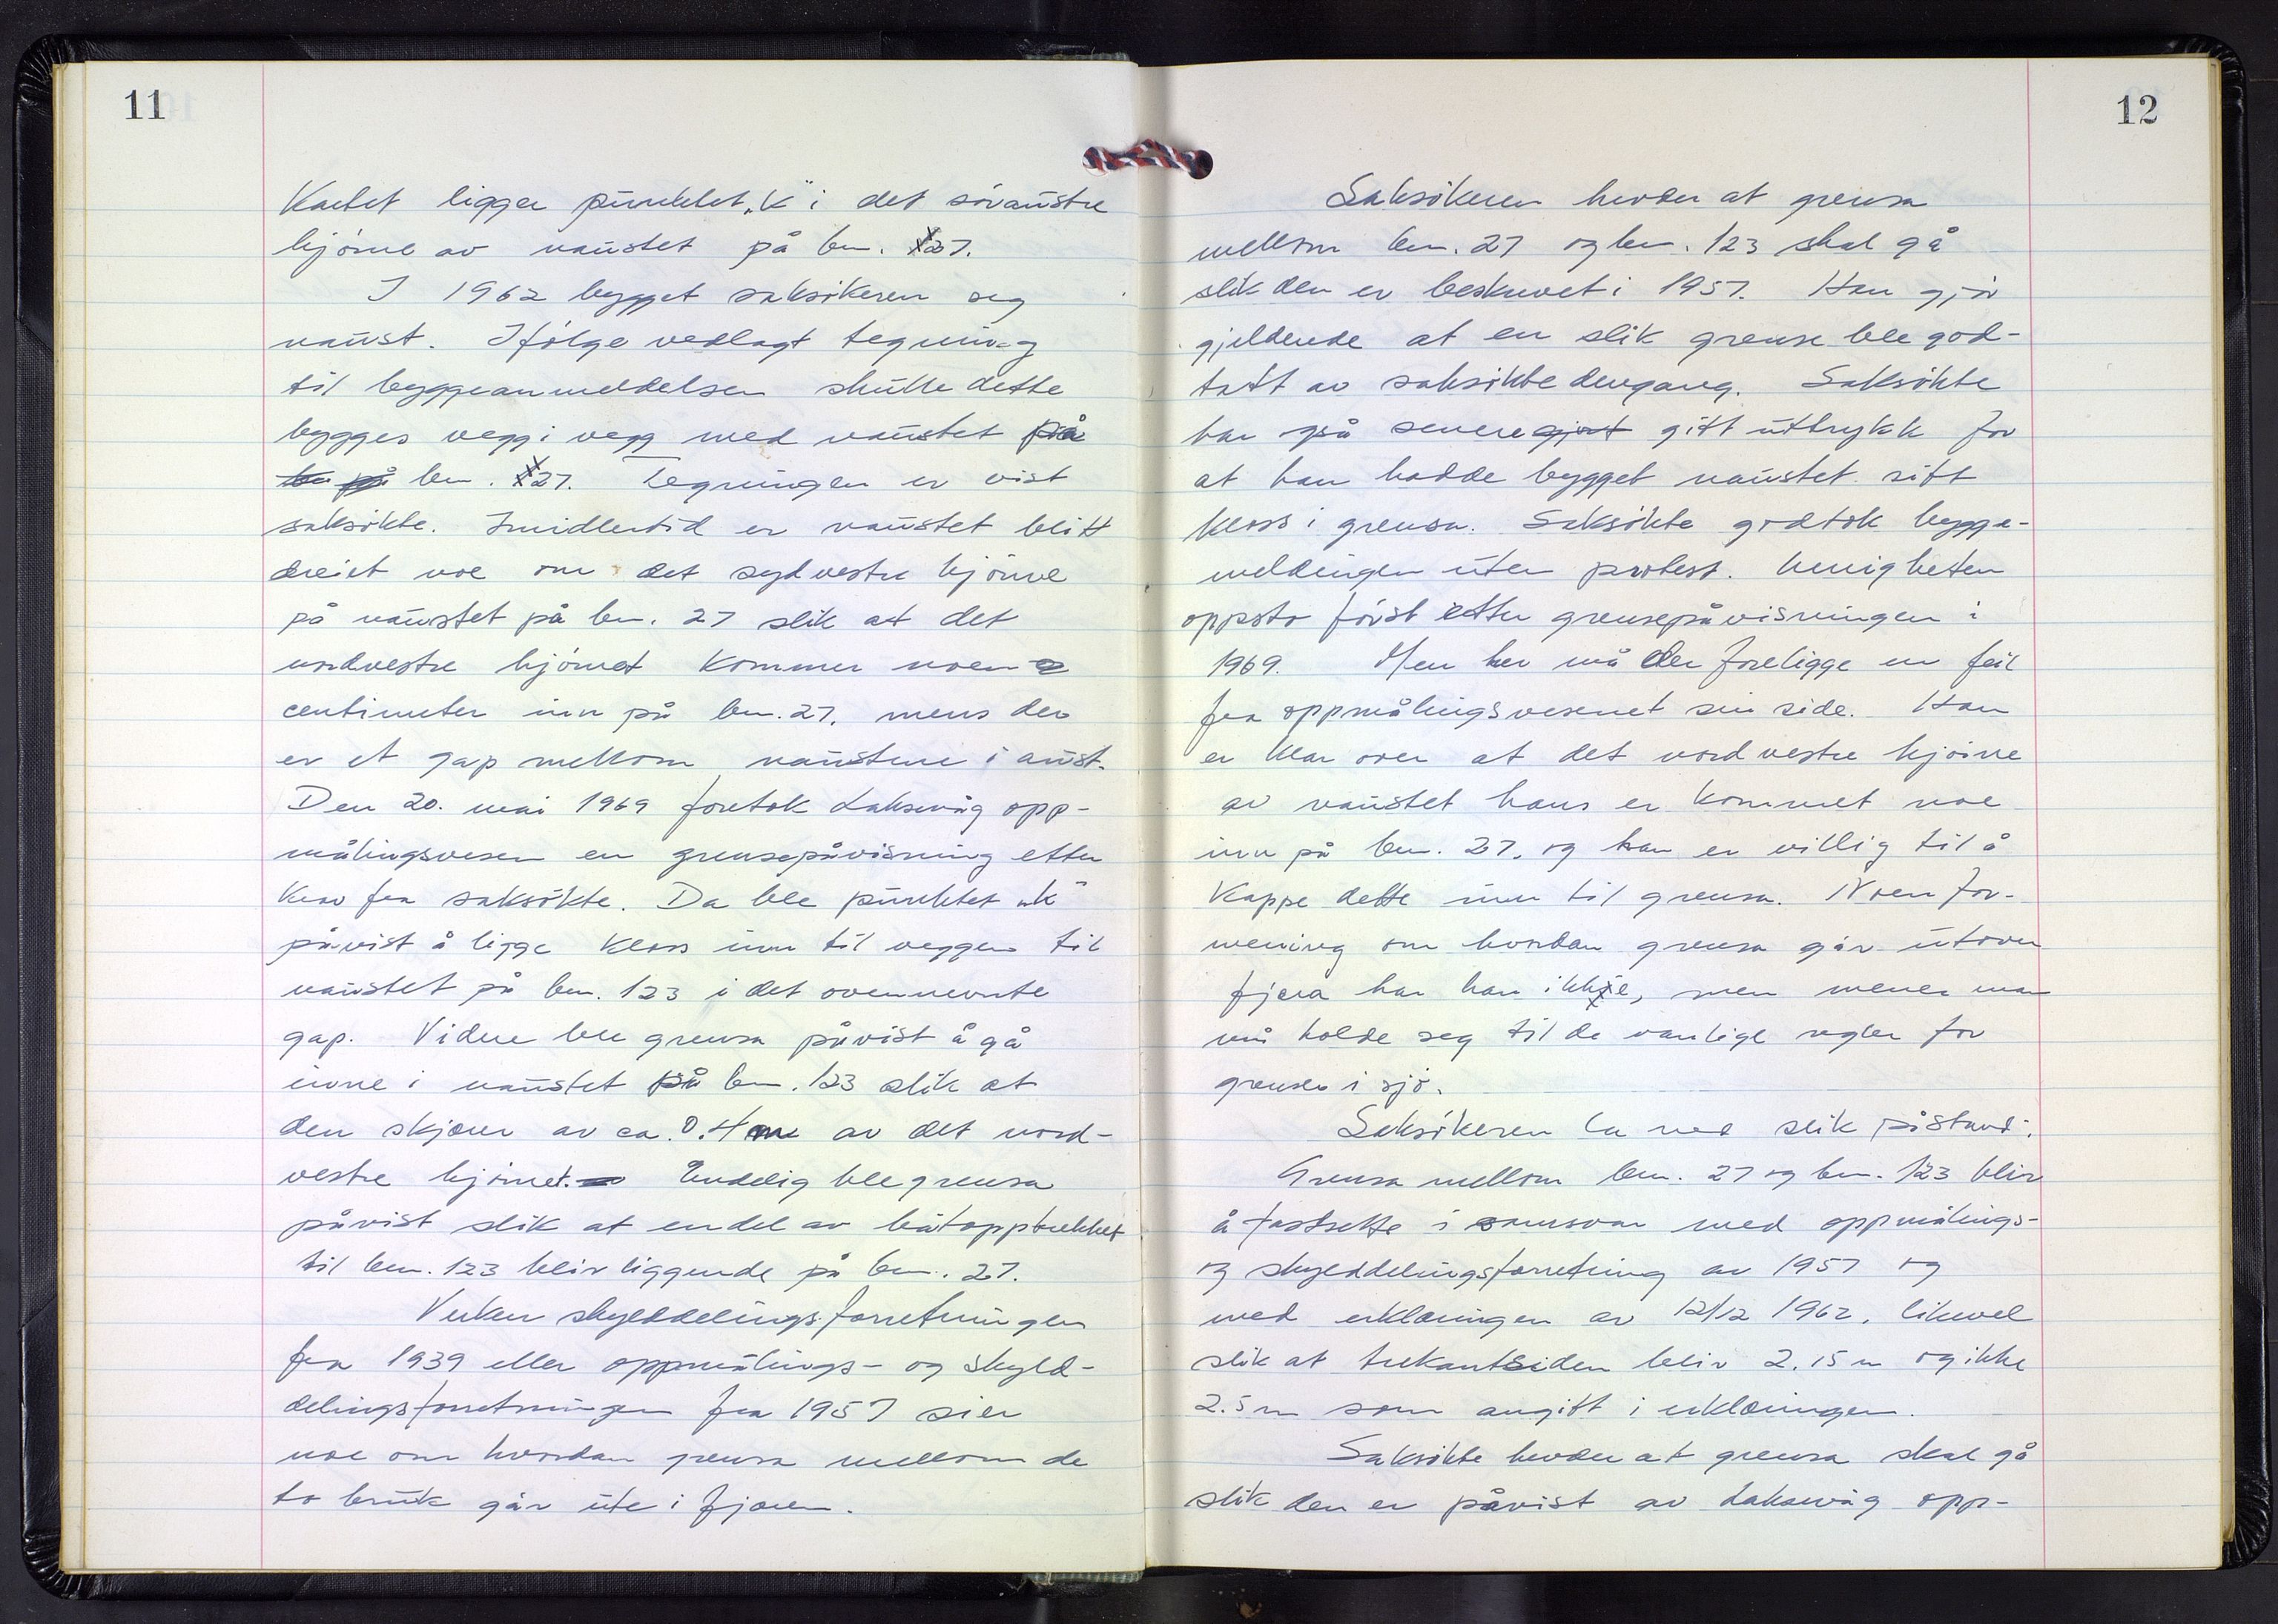 11
Kartet ligger punktet „K" i det søraustre
hjørne av naustet på bn. 27.
I 1962 bygget saksøkeren seg
naust. Ifølge vedlagt tegning
til byggeanmeldelsen skulle dette
bygges vegg i vegg med naustet på
bn. 27. Tegningen er vist
saksøkte. Imidlertid er naustet blitt
dreiet noe om det sydvestre hjørne
på naustet på bn. 27 slik at det
nordvestre hjørnet kommer noen
centimeter inn på bn. 27, mens der
er et gap mellom naustene i aust.
Den 20. mai 1969 foretok Laksevåg opp-
målingsvesen en grensepåvisning etter
krav fra saksøkte. Da ble punktet „K"
påvist å ligge kloss inn til veggen til
naustet på bn. 123 i det ovennevnte
gap. Videre ble grensa påvist å gå
inne i naustet på bn. 123 slik at
den skjærer av ca. 0.4 m av det nord-
vestre hjørnet. Endelig ble grensa
påvist slik at en del av båtopptrekket
til bn. 123 blir liggende på bn. 27.
Verken skylddelingsforretningen
fra 1939 eller oppmålings- og skyld-
delingsforretningen fra 1957 sier
noe om hvordan grensa mellom de
to bruk går ute i fjæren.
12
Saksøkeren hevder at grensa
mellom bn. 27 og bn. 123 skal gå
slik den er beskrevet i 1957. Han gjør
gjeldende at en slik grense ble god-
tatt av saksøkte dengang. Saksøkte
har også senere gjort gitt uttrykk for
at han hadde bygget naustet sitt
kloss i grensa. Saksøkte godtok bygge-
meldingen uten protest. Uenigheten
oppsto først etter grensepåvisningen i
1969. Men her må der foreligge en feil
fra oppmålingsvesenet sin side. Han
er klar over at det nordvestre hjørne
av naustet hans er kommet noe
inn på bn. 27, og han er villig til å
kappe dette inn til grensa. Noen for-
mening om hvordan grensa går utover
fjæra har han ikke, men mener man
må holde seg til de vanlige regler for
grenser i sjø.
Saksøkeren la ned slik påstand:
Grensa mellom bn. 27 og bn. 123 blir
å fastsette i samsvar med oppmålings-
og skylddelingsforretning av 1957 og
med erklæringen av 12/12 1962, likevel
slik at trekantsiden blir 2.15 m og ikke
2.5 m som angitt i erklæringen.
Saksøkte hevder at grensa skal gå
slik den er påvist av Laksevåg opp-